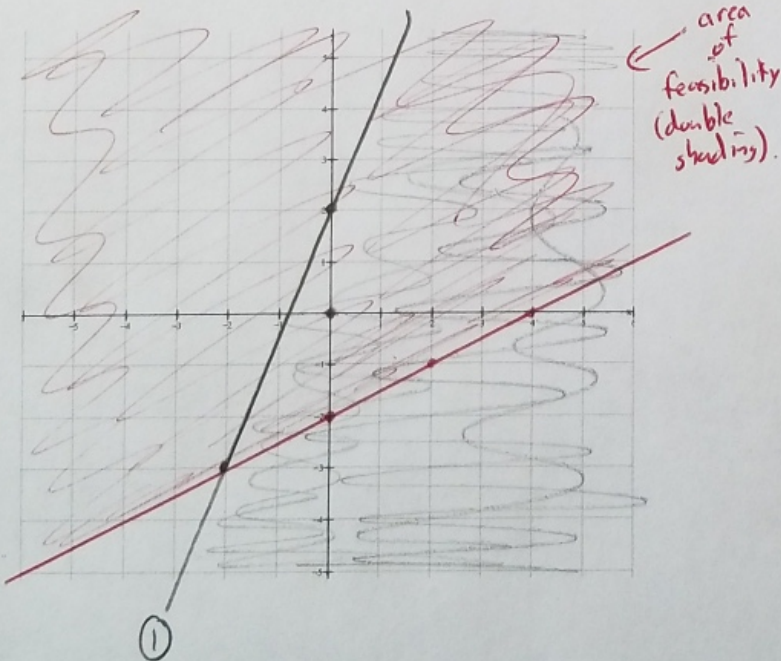 area
of
feasibility
(double
shading).
5
4
3
2
1
-5
-4
-3
-2
2
3
4
-1
-2
-3
-4
-5
①